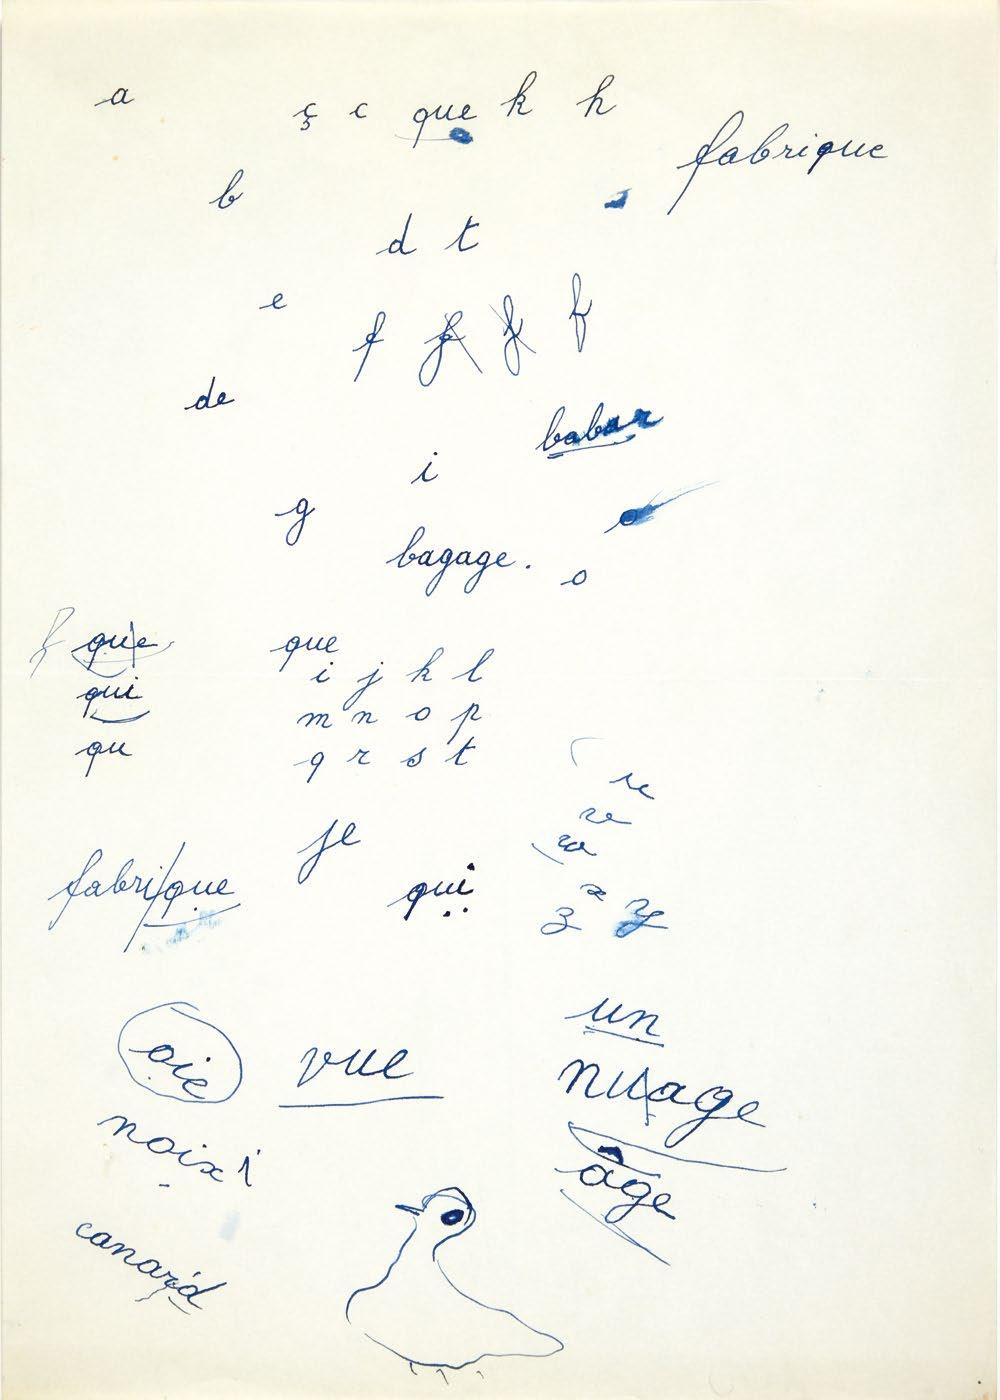 a
ç c que k h
fabrique
b
d t
e
f f f f
de
babar
i
g
bagage.
o
que que
i j k l
qui
m n o p
qu
q r s t
re
ve
w
je
fabri/que
qui
x
z y
un
oie vue
nuage
noix
âge
canard